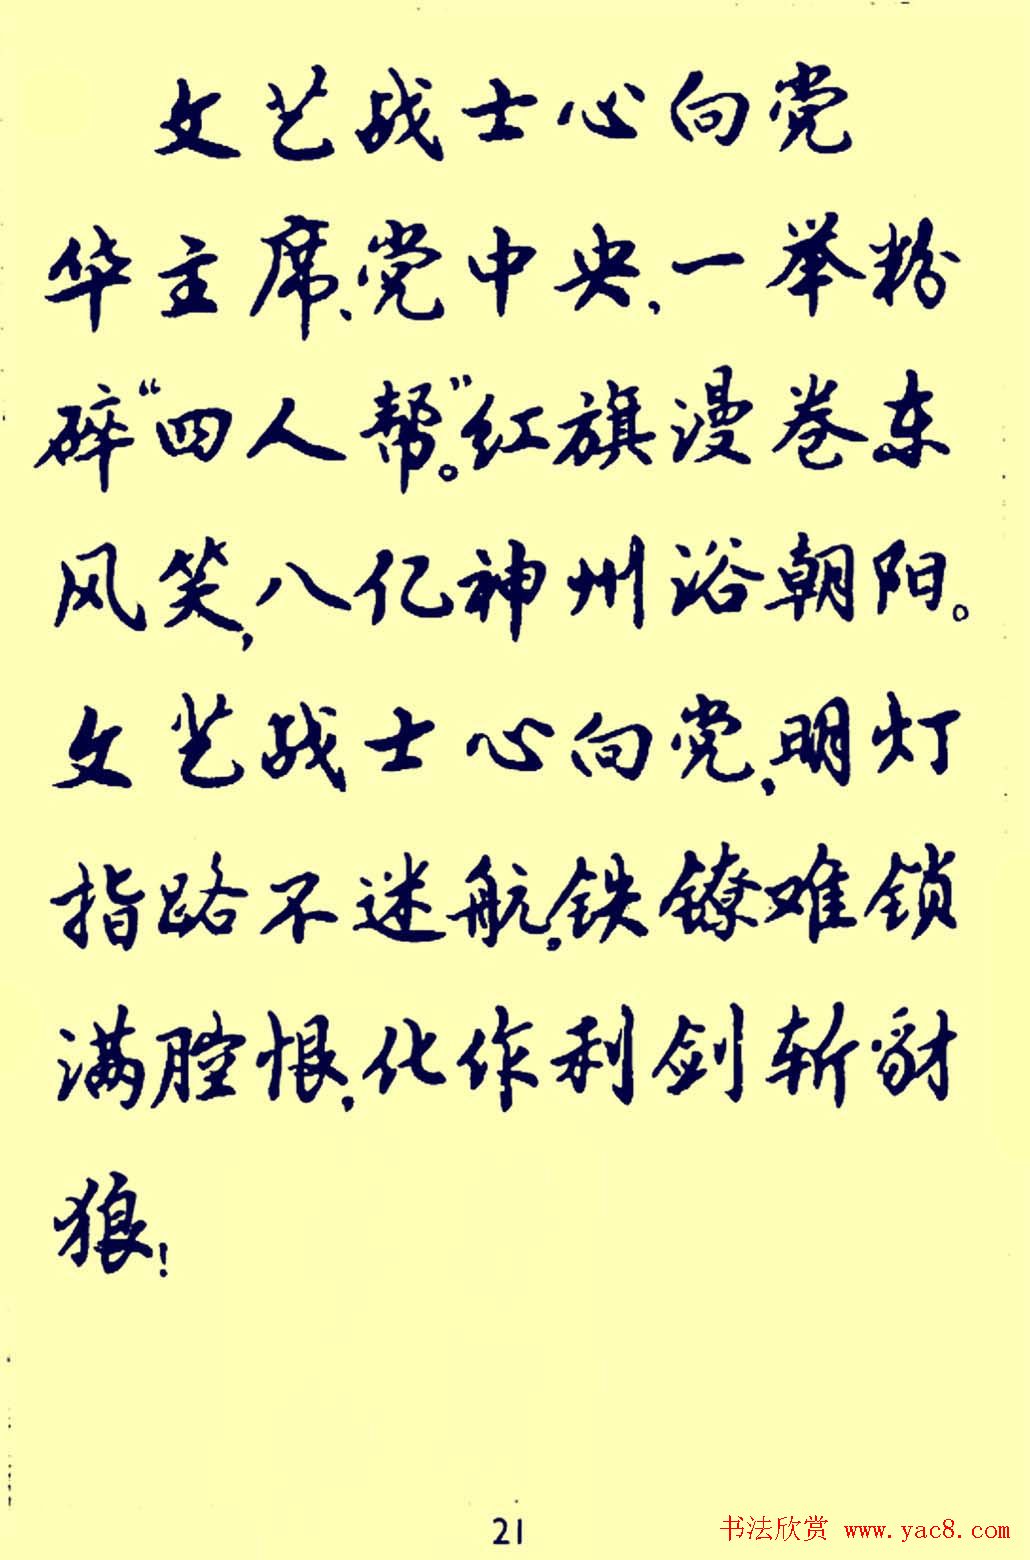 文艺战士心向党
华主席、党中央,一举粉
碎“四人帮”。红旗漫卷东
风笑,八亿神州浴朝阳。
文艺战士心向党,明灯
指路不迷航,铁镣难锁
满腔恨,化作利剑斩豺
狼!
21
书法欣赏 www.yac8.com